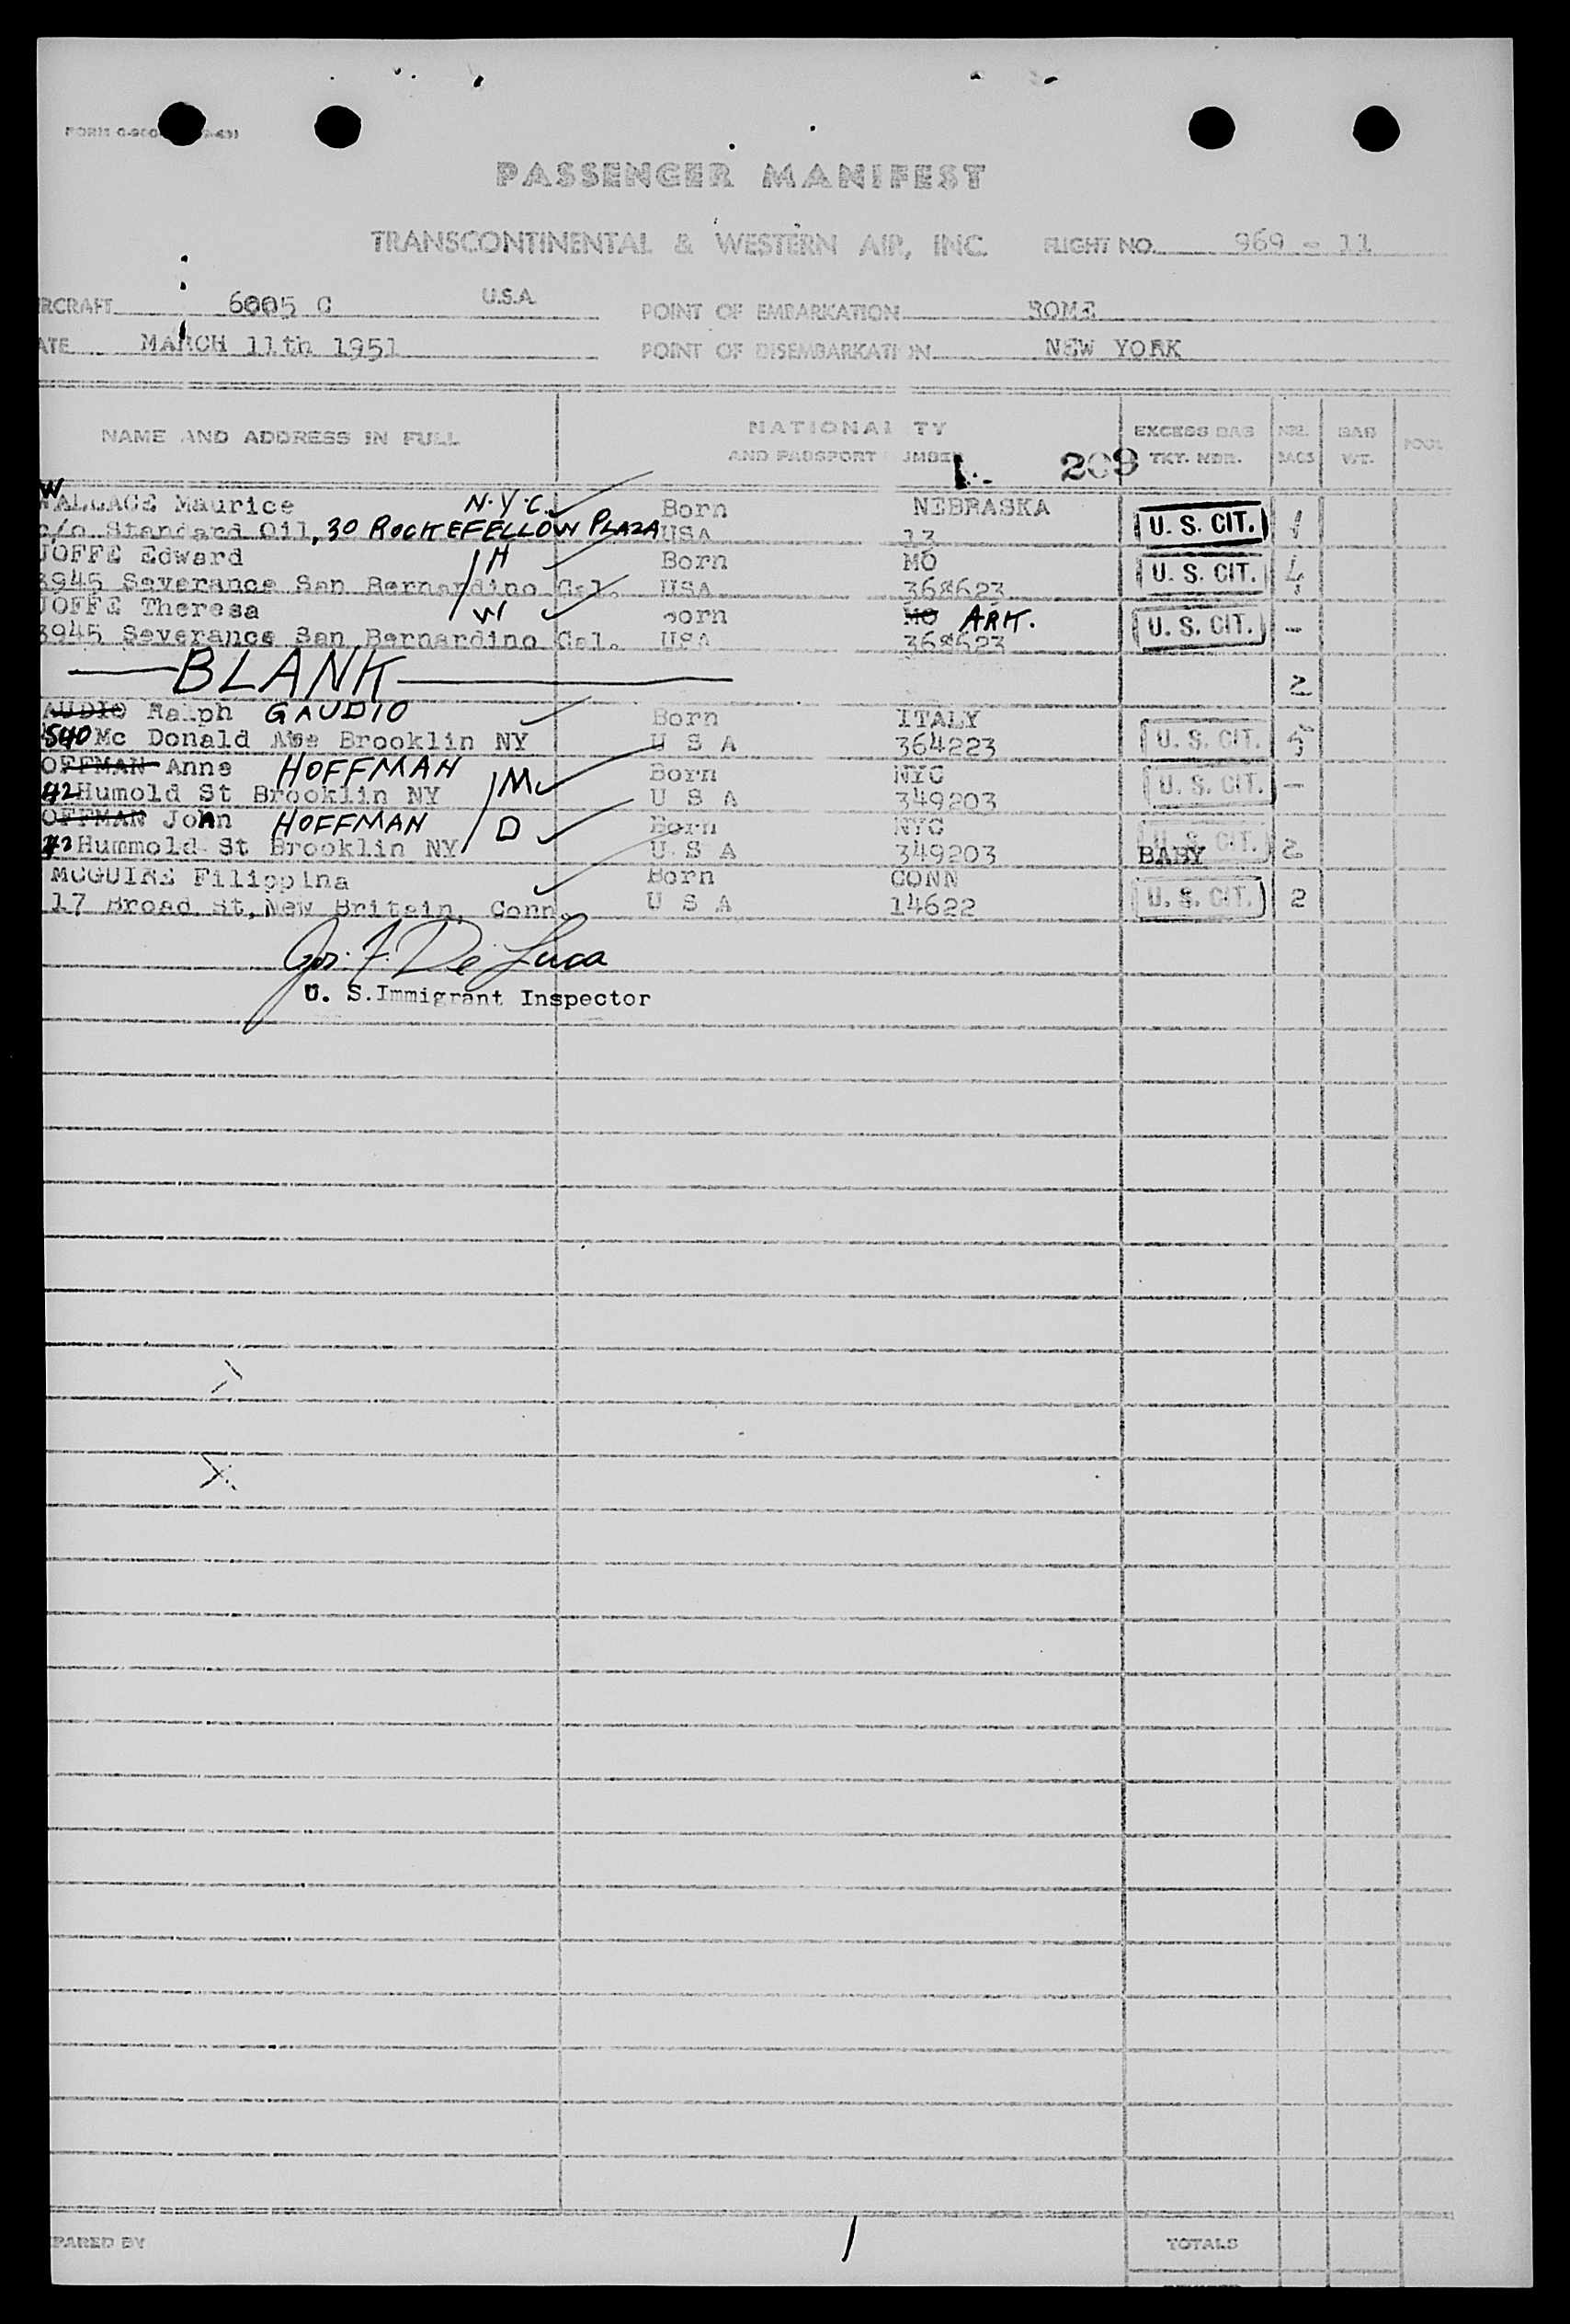 PASSENGER MANIFEST
TRANSCONTINENTAL & WESTERN AIR, INC. FLIGHT NO. 969 - 11
RCRAFT 6005 C U.S.A. POINT OF EMBARKATION ROME
ATE MARCH 11th 1951 POINT OF DISEMBARKATION NEW YORK
NAME AND ADDRESS IN FULL NATIONAL TY EXCESS BAG NBR. BAG POOL
AND PASSPORT UMBER 209 TKT. NBR. BAGS WT.
WALLACE Maurice N.Y.C. Born NEBRASKA U. S. CIT. 1
c/o Standard Oil, 30 ROCKEFELLOW PLAZA USA 13
JOFFE Edward H Born MO U. S. CIT. 4
3945 Severance San Bernardino Cal. USA 368623
JOFFE Theresa W Born MO ARK. U. S. CIT. -
3945 Severance San Bernardino Cal. USA 368623
BLANK 2
AUDIO Ralph GAUDIO Born ITALY U. S. CIT.
540 Mc Donald Ave Brooklin NY U S A 364223
OFFMAN Anne HOFFMAN M Born NYC U. S. CIT. -
42 Humold St Brooklin NY U S A 349203
OFFMAN John HOFFMAN D Born NYC U. S. CIT. 2
42 Hummold St Brooklin NY U S A 349203 BABY
MCGUIRE Filippina Born CONN U. S. CIT. 2
17 Broad St, New Britain, Conn. U S A 14622
Jos. F. De Luca
U. S. Immigrant Inspector
PARED BY TOTALS